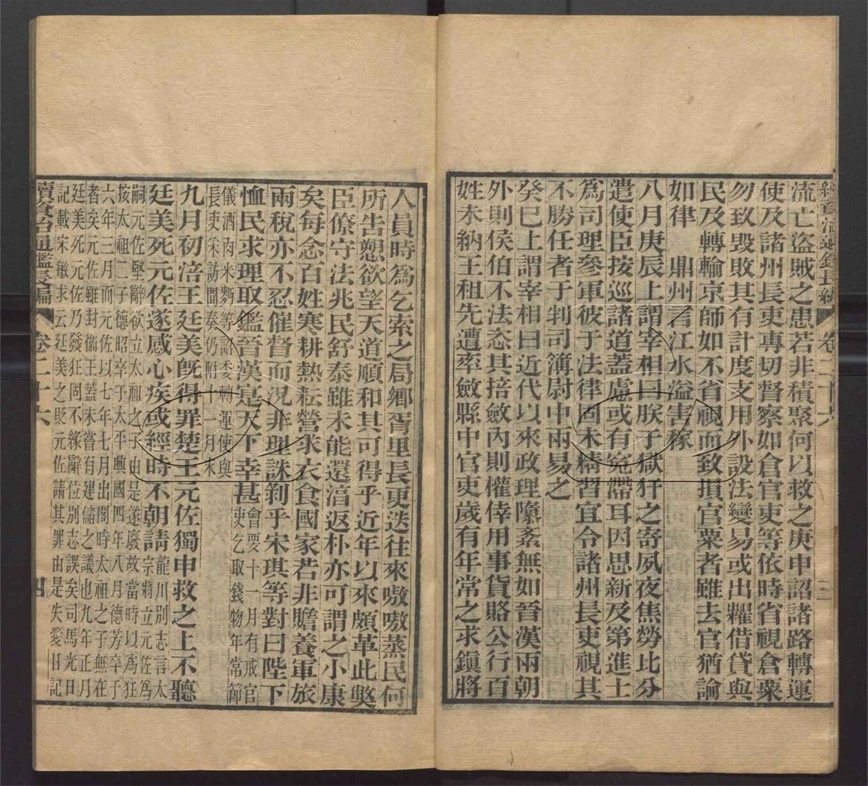 續資治通鑑長編 卷二十六 三
流亡盜賊之患若非積聚何以救之庚申詔諸路轉運
使及諸州長吏專切督察如倉官吏等依時省視倉粟
勿致毀敗其有計度支用外設法變易或出糶借貸與
民及轉輸京師如不省視而致損官粟者雖去官猶論
如律 鼎州言江水溢害稼
八月庚辰上謂宰相曰朕于獄犴之寄夙夜焦勞比分
遣使臣按巡諸道蓋慮或有冤滯耳因思新及第進士
為司理參軍彼于法律固未精習宜令諸州長吏視其
不勝任者于判司簿尉中兩易之
癸巳上謂宰相曰近代以來政理隳紊無如晉漢兩朝
外則侯伯不法恣其掊斂內則權倖用事貨賂公行百
姓未納王租先遭率斂縣中官吏歲有年常之求鎮將
人員時為乞索之局鄉胥里長更迭往來嗷嗷蒸民何
所告懇欲望天道順和其可得乎近年以來頗革此獘
臣僚守法兆民舒泰雖未能還淳返朴亦可謂之小康
矣每念百姓寒耕熱耘營求衣食國家若非贍養軍旅
兩稅亦不忍催督而況非理誅剝乎宋琪等對曰陛下
恤民求理取鑑晉漢寔天下幸甚
會要十一月有戒官
吏乞取錢物年常節
儀酒肉米麪等詔委轉運使與
長吏采訪聞奏仍附十一月末
九月初涪王廷美旣得罪楚王元佐獨申救之上不聽
廷美死元佐遂感心疾或經時不朝請
龍川別志言太
宗將立元佐為
嗣元佐堅辭欲立太祖之子由是遂廢故當時以為狂
按太祖二子德昭卒于太平興國四年八月德芳卒于
六年三月而元佐以七年七月出閤時太祖之子無在
者矣元佐雖封衞王蓋未嘗有建儲之議也九年正月
廷美死元佐乃發狂固不緣辭位別志誤矣司馬光日
記載宋敏求云廷美之貶元佐請其罪由是失愛日記
續資治通鑑長編 卷二十六 四